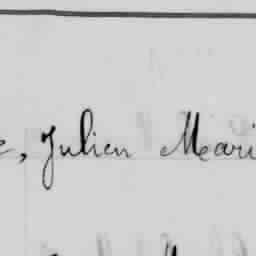 e, Julien Mari